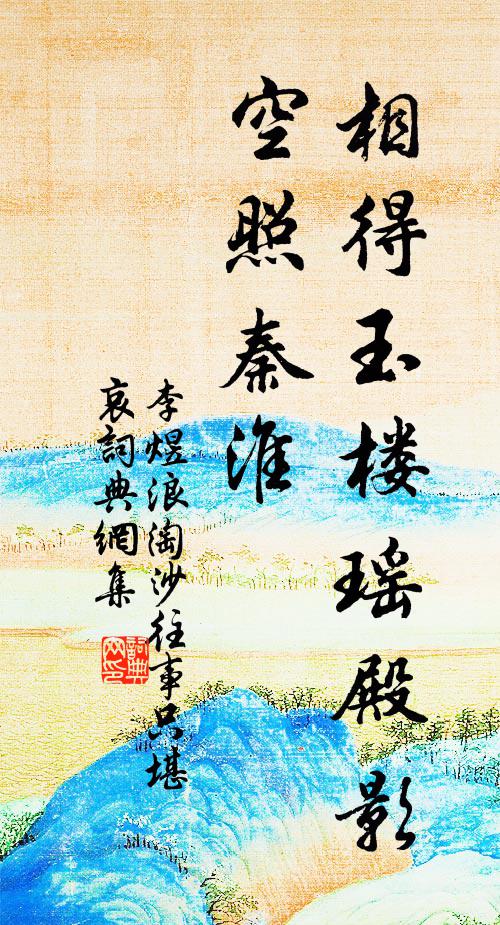 相得玉楼瑶殿影
空照秦淮
李煜浪淘沙往事只堪
哀詞典網集
詞典